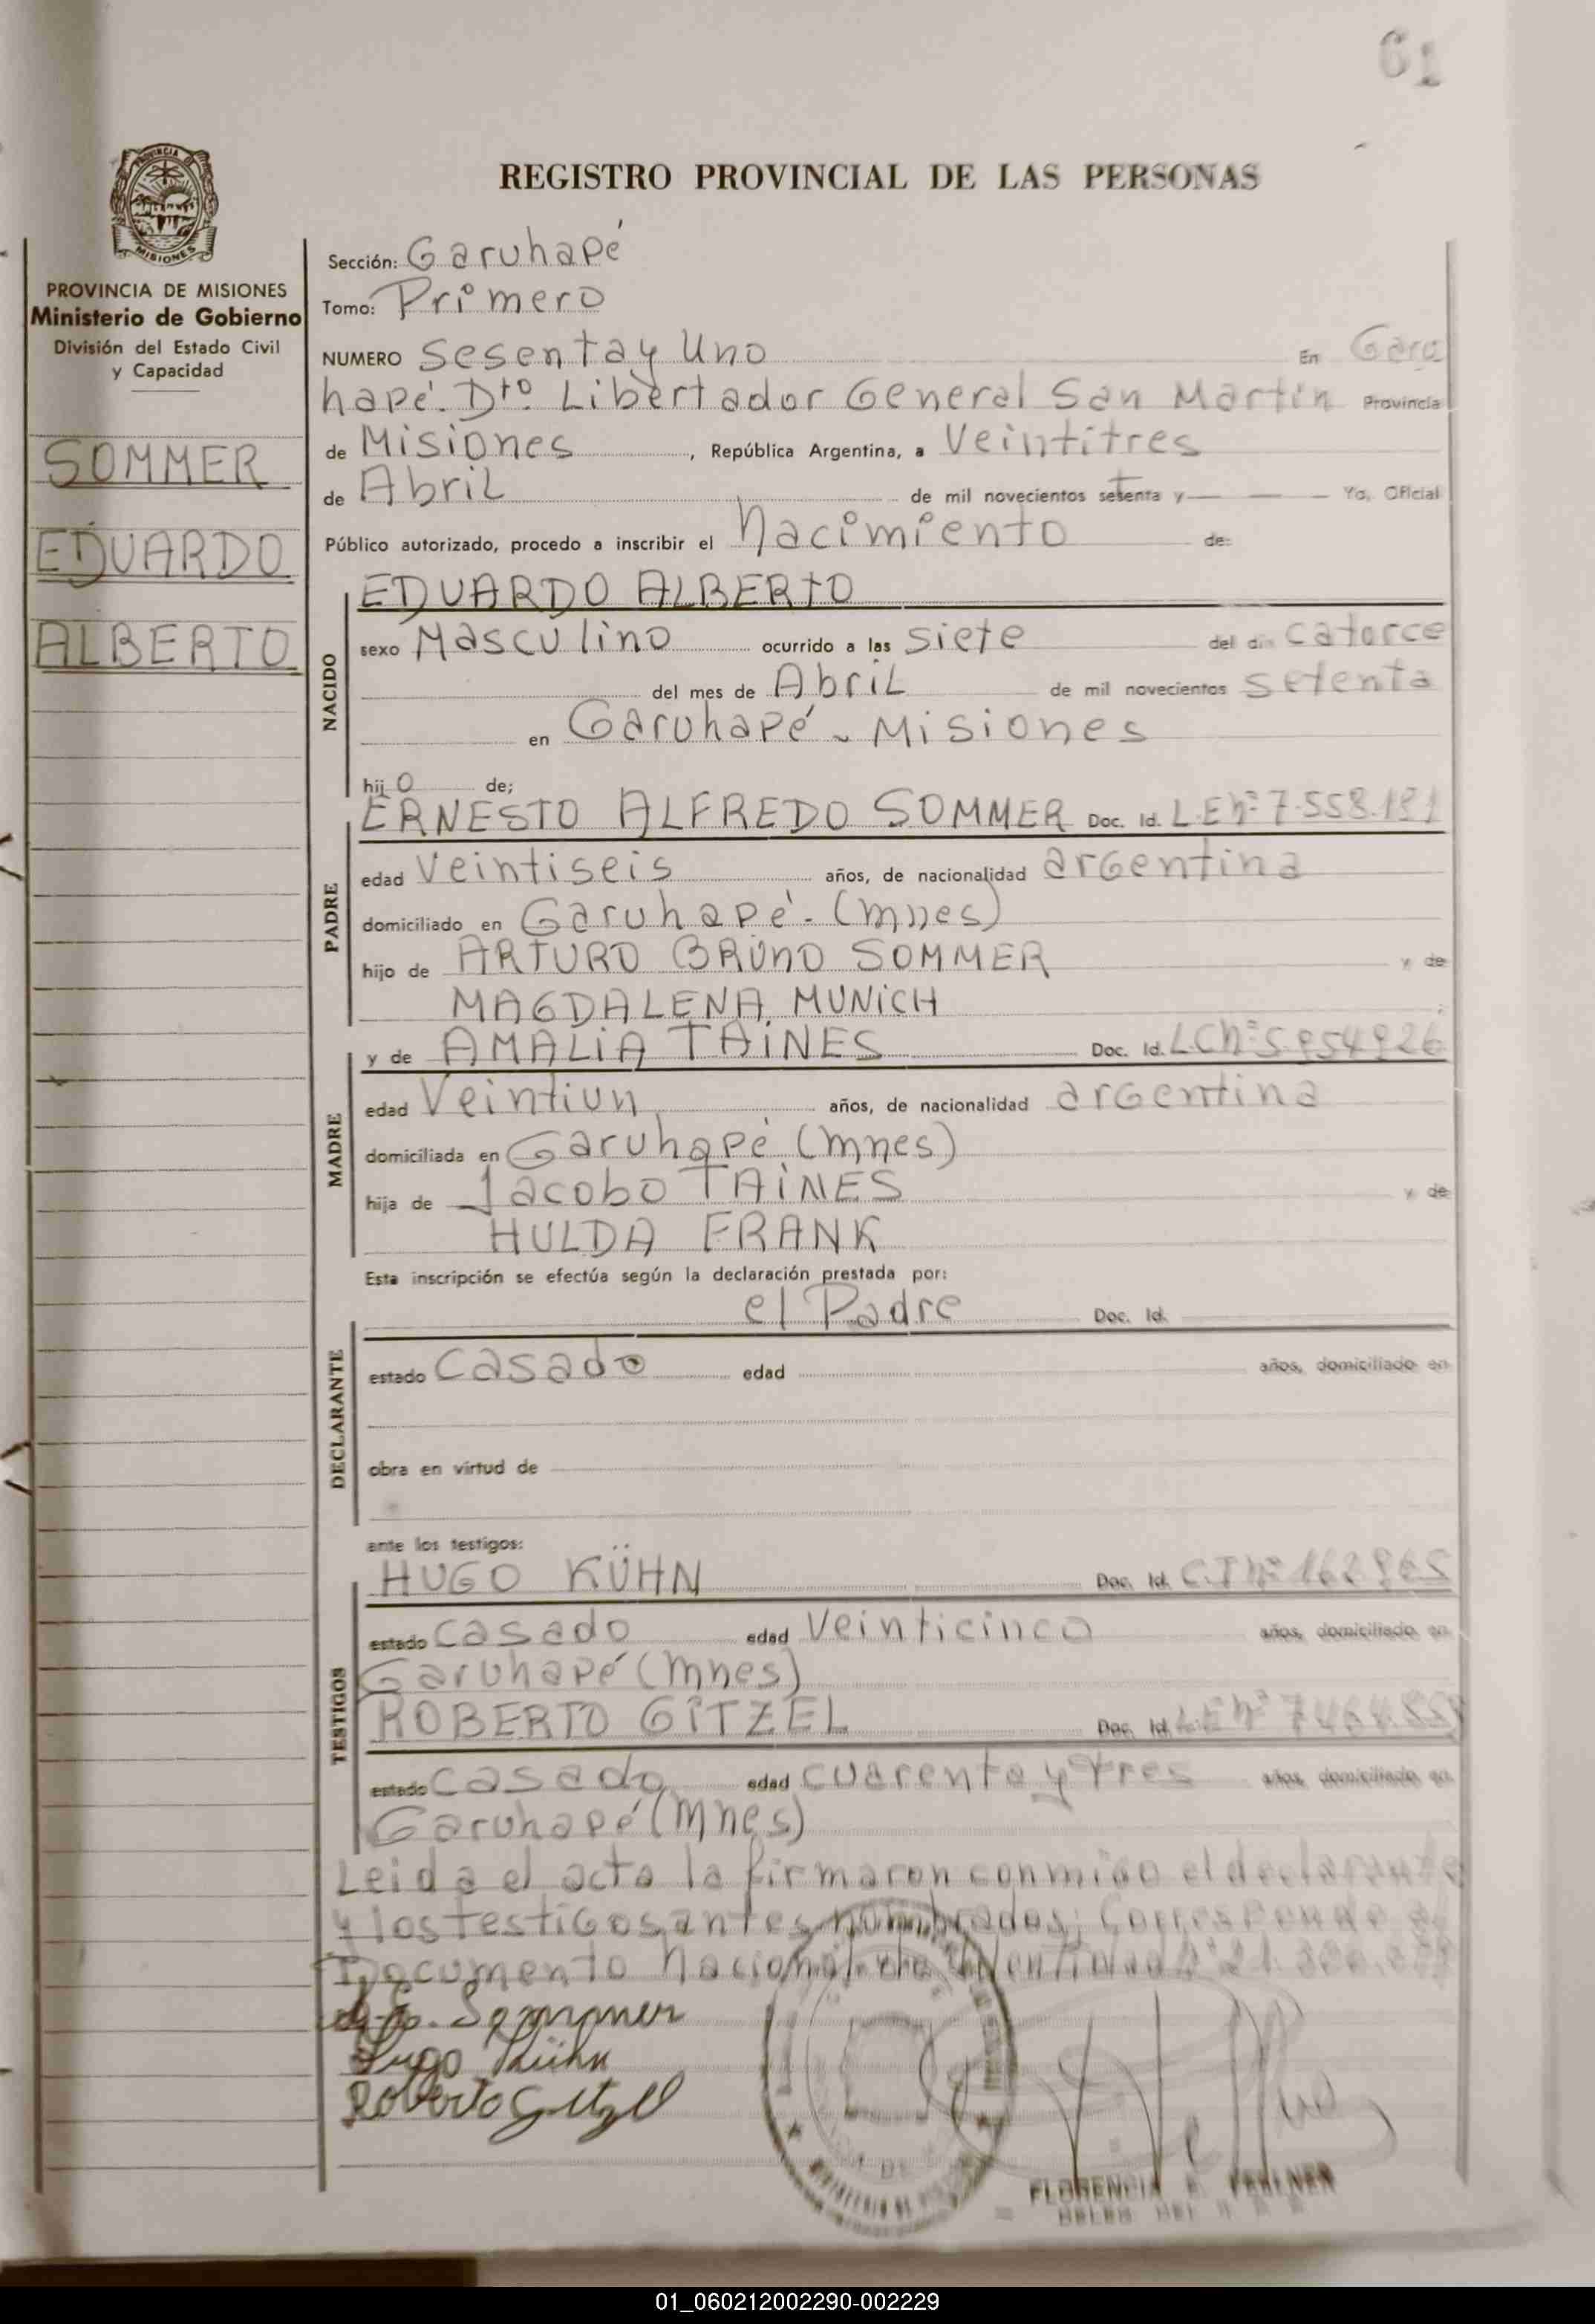 61
REGISTRO PROVINCIAL DE LAS PERSONAS
PROVINCIA DE MISIONES
Ministerio de Gobierno
División del Estado Civil
y Capacidad
SOMMER
EDUARDO
ALBERTO
Sección: Garuhapé
Tomo: Primero
NUMERO Sesenta y Uno En Garu
hapé. Dto. Libertador General San Martín Provincia
de Misiones, República Argentina, a Veintitres
de Abril de mil novecientos setenta y — — — Yo, Oficial
Público autorizado, procedo a inscribir el Nacimiento de:
NACIDO
EDUARDO ALBERTO
sexo Masculino ocurrido a las Siete del día catorce
del mes de Abril de mil novecientos setenta
en Garuhapé - Misiones
hijo de;
PADRE
ERNESTO ALFREDO SOMMER Doc. Id. L.E Nº 7.558.191
edad Veintiseis años, de nacionalidad argentina
domiciliado en Garuhapé - (Mnes)
hijo de ARTURO BRUNO SOMMER y de
MAGDALENA MUNICH
MADRE
y de AMALIA TAINES Doc. Id. LC Nº 5.954926
edad Veintiun años, de nacionalidad argentina
domiciliada en Garuhapé (Mnes)
hija de Jacobo TAINES y de
HULDA FRANK
Esta inscripción se efectúa según la declaración prestada por:
DECLARANTE
el Padre Doc. Id.
estado Casado edad años, domiciliado en
obra en virtud de
ante los testigos:
TESTIGOS
HUGO KÜHN Doc. Id. C.I Nº
estado Casado edad Veinticinco años, domiciliado en
Garuhapé (Mnes)
ROBERTO GITZEL Doc. Id. L.E Nº
estado Casado edad cuarenta y tres años, domiciliado en
Garuhapé (Mnes)
Leida el acta la firmaron conmigo el declarante
y los testigos antes nombrados; Corresponde a
Documento Nacional de Identidad Nº
Sommer
Hugo Kühn
Roberto Gitzel
FLORENCIA
01_060212002290-002229